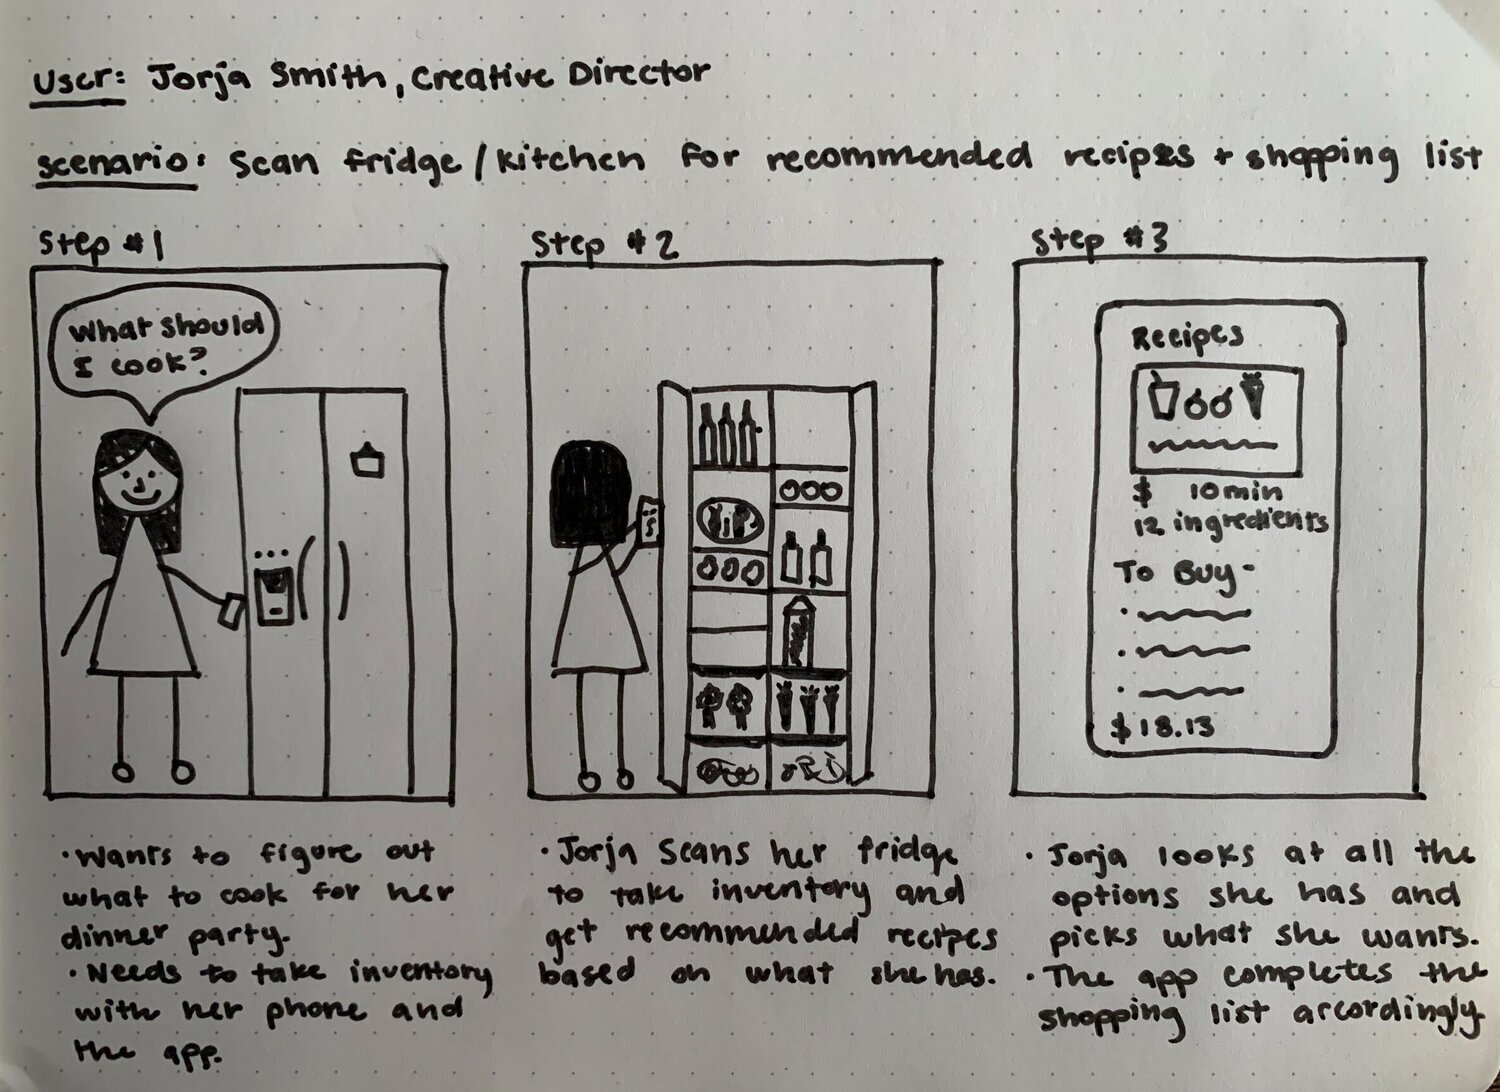 User: Jorja Smith, Creative Director
Scenario: Scan fridge/kitchen for recommended recipes + shopping list
Step #1
What should
I cook?
• Wants to figure out
what to cook for her
dinner party.
• Needs to take inventory
with her phone and
the app.
Step #2
• Jorja scans her fridge
to take inventory and
get recommended recipes
based on what she has.
Step #3
Recipes
$ 10 min
12 ingredients
To Buy-
$18.13
• Jorja looks at all the
options she has and
picks what she wants.
• The app completes the
shopping list accordingly.